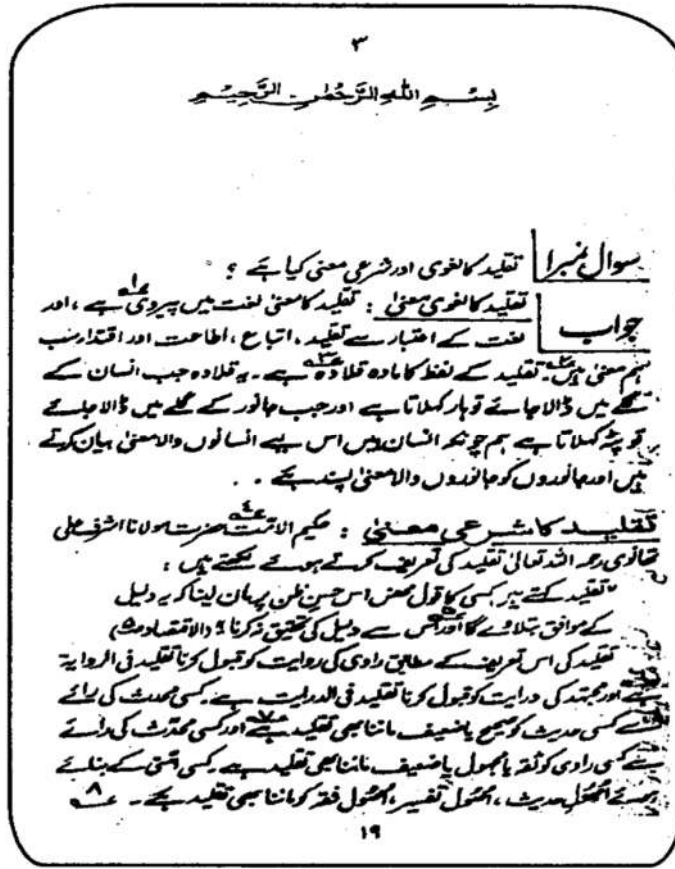 ۳
بِسْمِ اللهِ الرَّحْمٰنِ الرَّحِيْمِ
سوال نمبر ۱ تقلید کا لغوی اور شرعی معنی کیا ہے ؟
جواب تقلید کا لغوی معنیٰ : تقلید کا معنیٰ لغت میں پیروی ہے ، اور
لغت کے اعتبار سے تقلید ، اتباع ، اطاعت اور اقتداء سب
ہم معنیٰ ہیں۔ تقلید کے لفظ کا مادہ قلادہ ہے ۔ یہ قلادہ جب انسان کے
گلے میں ڈالا جائے تو ہار کہلاتا ہے اور جب جانور کے گلے میں ڈالا جائے
تو پٹہ کہلاتا ہے ہم چونکہ انسان ہیں اس لیے انسانوں والا معنیٰ بیان کرتے
ہیں اور جانوروں کو جانوروں والا معنیٰ پسند ہے ۔ ۔
تقلید کا شرعی معنیٰ : حکیم الامت حضرت مولانا اشرف علی
تھانوی رحمہ اللہ تعالیٰ تقلید کی تعریف کرتے ہوئے لکھتے ہیں :
"تقلید کہتے ہیں کسی کا قول محض اس حسنِ ظن پر مان لینا کہ یہ دلیل
کے موافق بتلاوے گا اور اس سے دلیل کی تحقیق نہ کرنا" (الاقتصاد ص۵)
تقلید کی اس تعریف کے مطابق راوی کی روایت کو قبول کرنا تقلید فی الروایۃ
ہے اور مجتہد کی درایت کو قبول کرنا تقلید فی الدرایت ہے ۔ کسی محدث کی رائے
سے کسی حدیث کو صحیح یا ضعیف ماننا بھی تقلید ہے۷ اور کسی محدّث کی رائے
سے کسی راوی کو ثقہ یا مجہول یا ضعیف ماننا بھی تقلید ہے ۔ کسی امتی کے بنائے
ہوئے اُصُولِ حدیث ، اصُول تفسیر ، اصُول فقہ کو ماننا بھی تقلید ہے ۔ ۸
۱۹